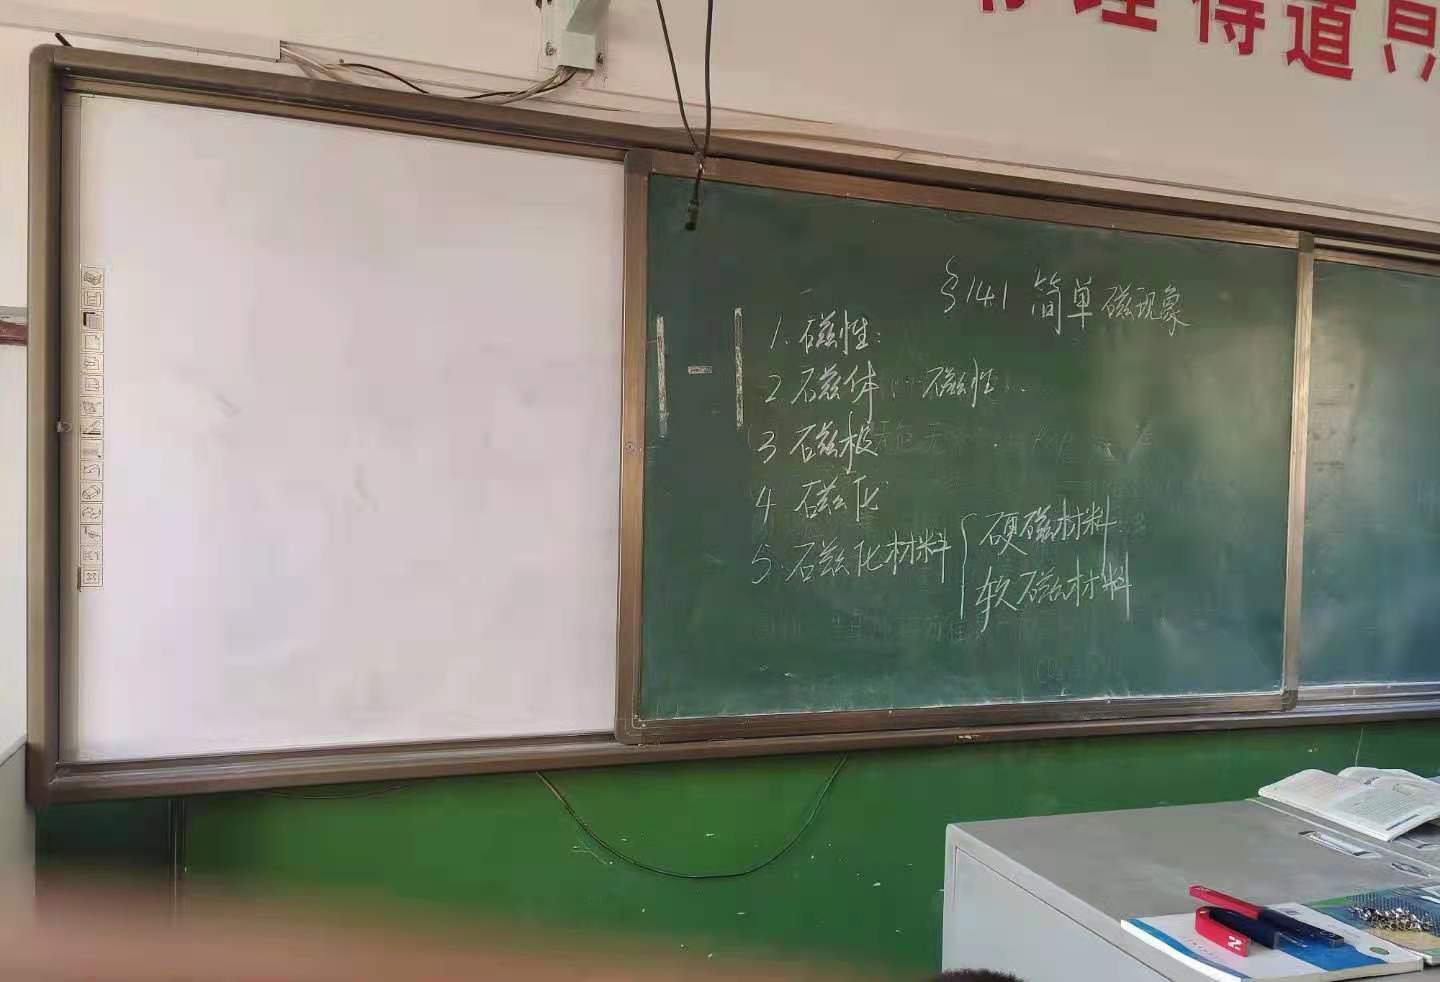 理得道具
§14.1 简单磁现象
1. 磁性:
2 磁体: 磁性.
3 磁极
4 磁化
5. 磁化材料 { 硬磁材料
软磁材料
N